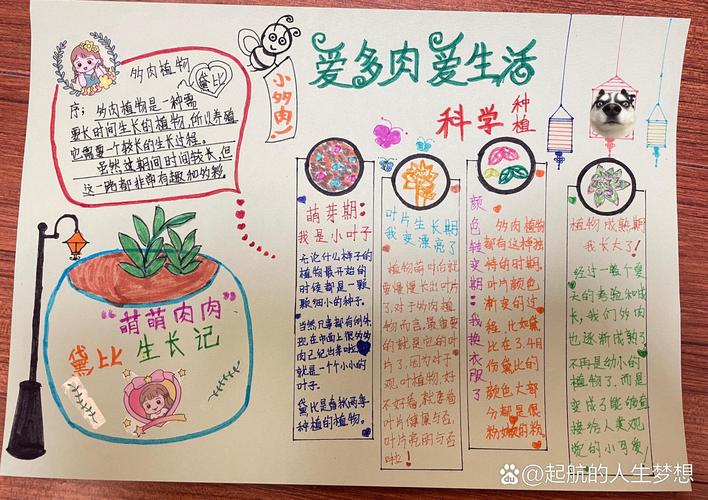 爱多肉爱生活
科学种植
小多肉！
多肉植物
黛比
序：多肉植物是一种需
要长时间生长的植物，所以养殖
它需要一个较长的生长过程。
虽然这期间时间较长，但
这一路都非常有趣
“萌萌肉肉”
黛比
生长记
萌芽期：
我是小叶子
无论什么种子的
植物最开始的
时候都是一颗
颗细小的种子。
当然凡事都有例外，
现在市面上很多的多
肉已经出来啦
就是一个小小的
叶子。
黛比是春秋两季
种植的植物。
叶片生长期
我变漂亮了
植物萌叶后就
要慢慢长出叶片
了，对于多肉植
物而言，最重要
的就是它的叶
片了，因为对于
观叶植物，好
不好看，就要看
叶片健康与否，
叶片亮丽与否
啦！
颜色转变期：我换衣服了
多肉植物
都有这种独
特的时期。
叶片颜色
渐变的过
程，比如黛
比在3.4月
份黛比的
颜色大部
分都是很
粉嫩嫩的粉
植物成熟期
我长大了！
经过一整个夏
天的考验和成
长，我们的多肉
也逐渐成熟了
不再是幼小的
植物了，而是
变成了能够直
接给人美观
觉的小可爱！
@起航的人生梦想